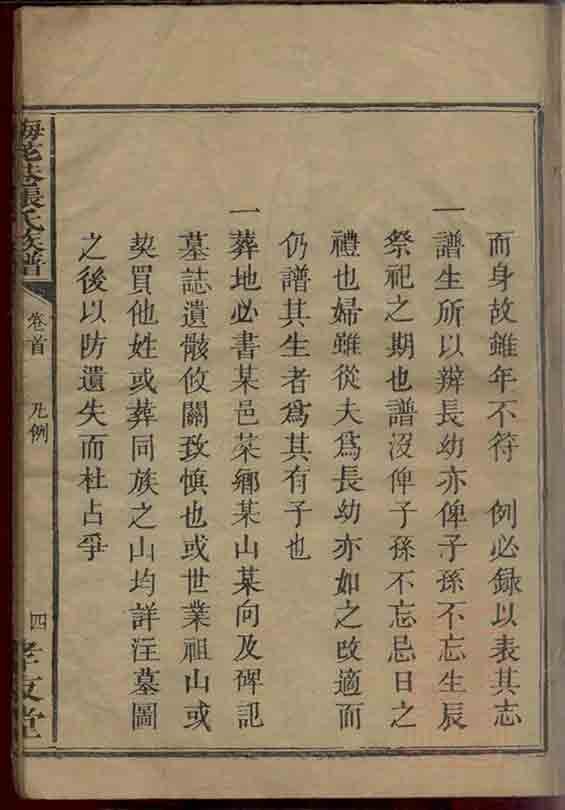 而身故雖年不符　例必録以表其志
一譜生所以辨長幼亦俾子孫不忘生辰
祭祀之期也譜沒俾子孫不忘忌日之
禮也婦雖從夫為長幼亦如之改適而
仍譜其生者為其有子也
一葬地必書某邑某鄉某山某向及碑記
墓誌遺骸攸關致慎也或世業祖山或
契買他姓或葬同族之山均詳注墓圖
之後以防遺失而杜占爭
張氏族譜
卷首　凡例
四
孝友堂